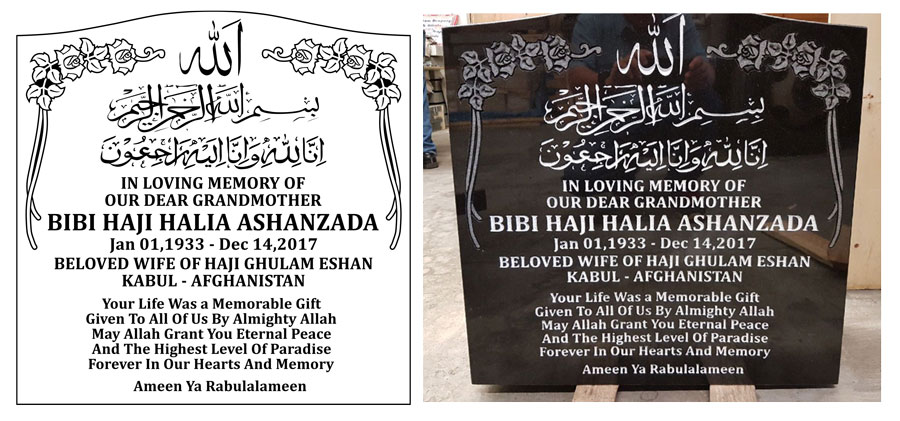 الله
بسم الله الرحمن الرحيم
انا لله وانا اليه راجعون
IN LOVING MEMORY OF
OUR DEAR GRANDMOTHER
BIBI HAJI HALIA ASHANZADA
Jan 01,1933 - Dec 14,2017
BELOVED WIFE OF HAJI GHULAM ESHAN
KABUL - AFGHANISTAN
Your Life Was a Memorable Gift
Given To All Of Us By Almighty Allah
May Allah Grant You Eternal Peace
And The Highest Level Of Paradise
Forever In Our Hearts And Memory
Ameen Ya Rabulalameen
الله
بسم الله الرحمن الرحيم
انا لله وانا اليه راجعون
IN LOVING MEMORY OF
OUR DEAR GRANDMOTHER
BIBI HAJI HALIA ASHANZADA
Jan 01,1933 - Dec 14,2017
BELOVED WIFE OF HAJI GHULAM ESHAN
KABUL - AFGHANISTAN
Your Life Was a Memorable Gift
Given To All Of Us By Almighty Allah
May Allah Grant You Eternal Peace
And The Highest Level Of Paradise
Forever In Our Hearts And Memory
Ameen Ya Rabulalameen